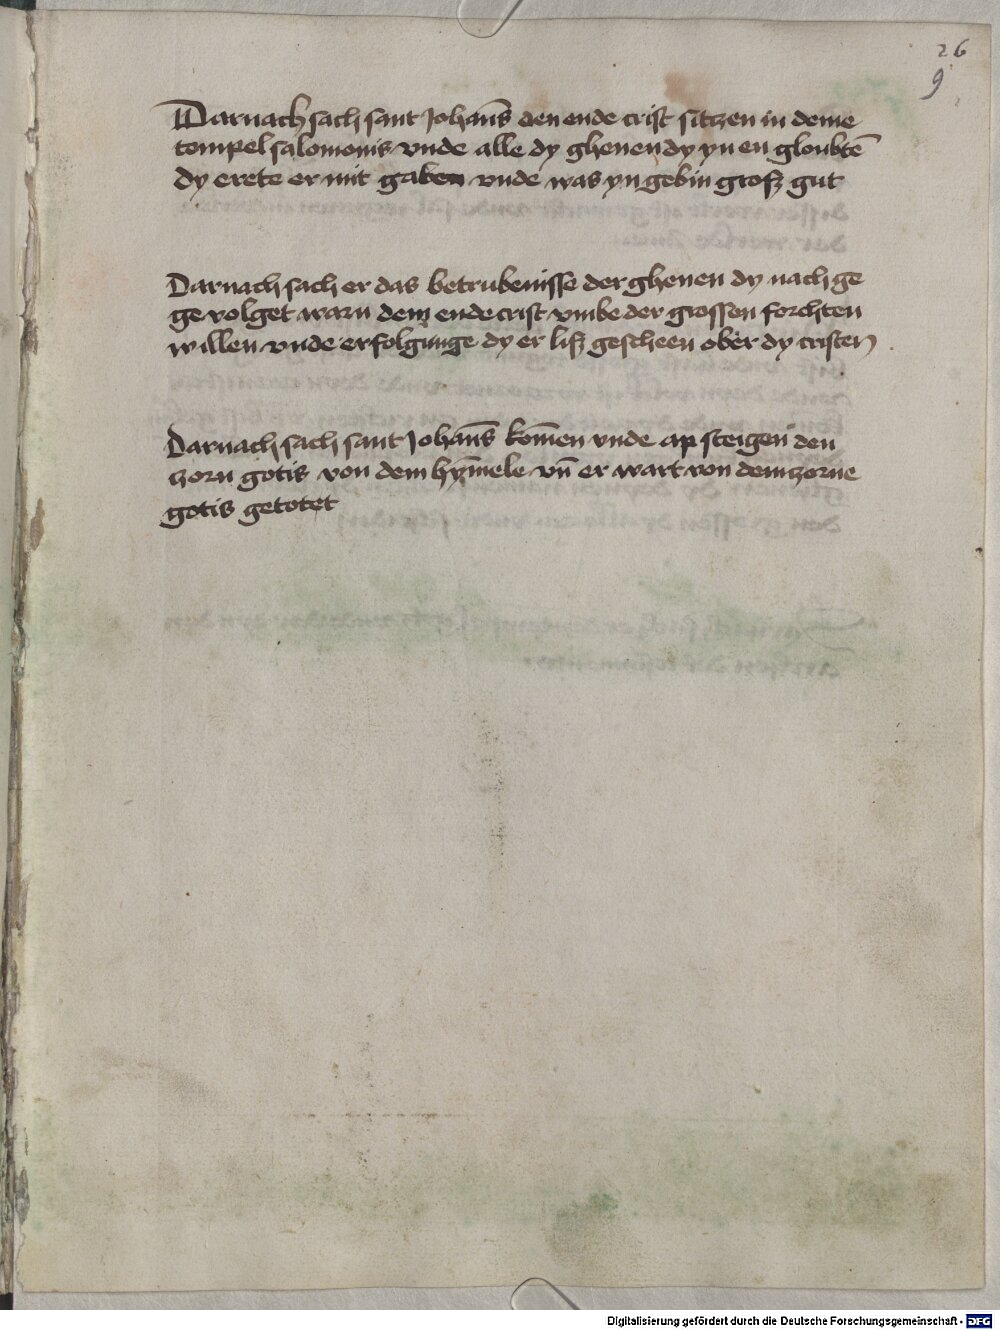 26
9
Darnach sach sant Johañs den ende crist sitzen in deme
tempel salomonis vnde alle dy ghenen dy yn en gloubtē
dy erete er mit gaben vnde was yn gebin grosz gut
Darnach sach er das betrubenisse der ghenen dy nach ge
ge volget warn dem ende crist vmbe der grossen forchten
willen vnde erfolgunge dy er lisz gescheen ober dy cristen
Darnach sach sant Johañs kom̄en vnde ap steigen den
zorn gotis von dem hym̄ele vn̄ er wart von dem zorne
gotis getotet
Digitalisierung gefördert durch die Deutsche Forschungsgemeinschaft - DFG